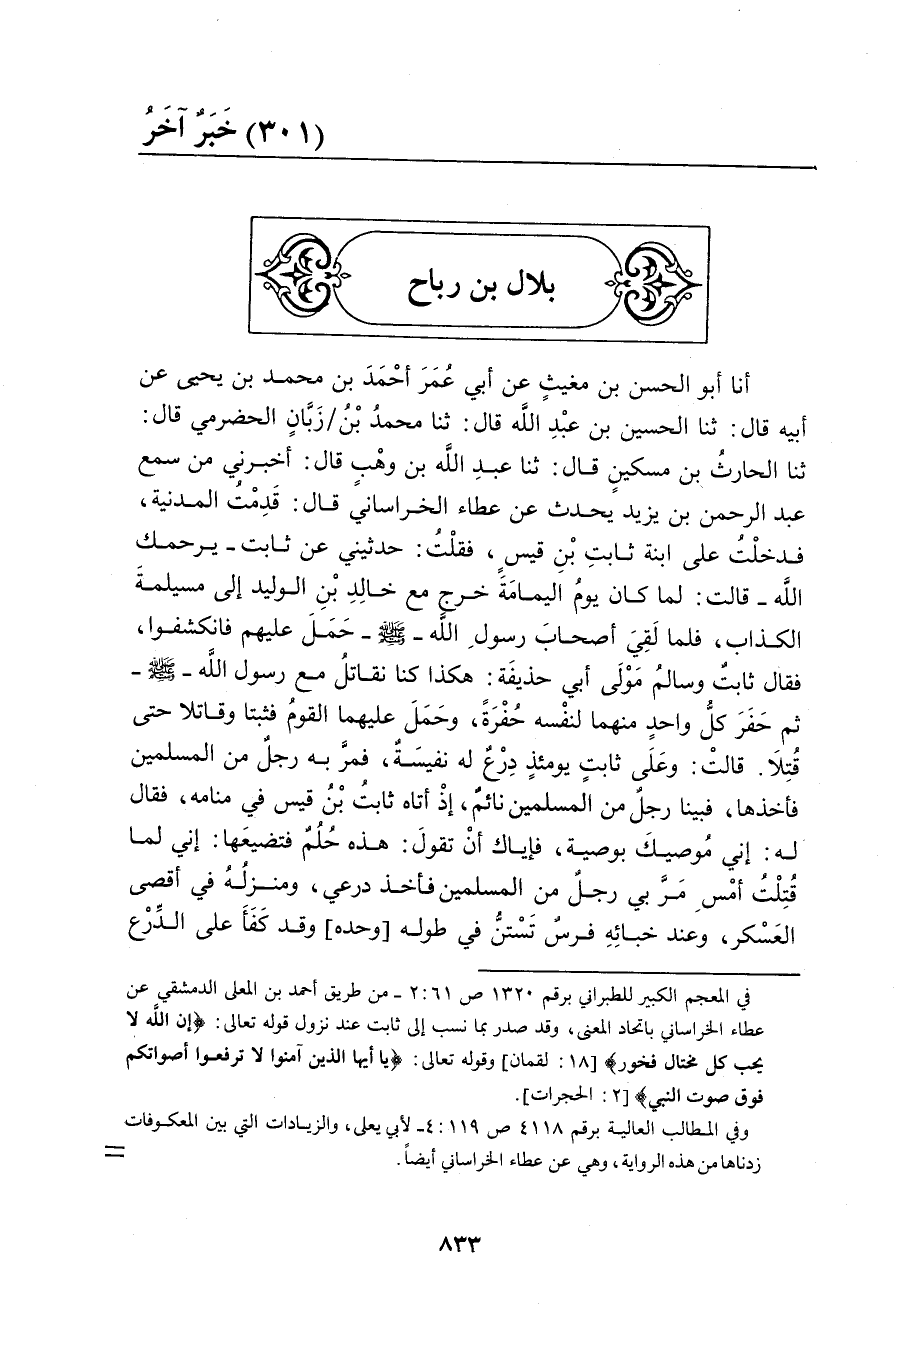 (٣٠١) خَبَرٌ آخَرُ
بلال بن رباح
أنا أبو الحسن بن مغيثٍ عن أبي عُمَرَ أحْمَدَ بن محمـد بن يحيى عن
أبيه قال: ثنا الحسين بن عبْدِ اللَّه قال: ثنا محمدُ بْنُ/زَبَّانٍ الحضرمي قال:
ثنا الحارثُ بن مسكينٍ قـال: ثنا عبـدِ اللَّه بن وهْبٍ قال: أخبـرني من سمع
عبد الرحمن بن يزيد يحـدث عن عطاء الخـراساني قـال: قَدِمْتُ المـدنية،
فـدخلْتُ على ابنة ثـابتِ بْنِ قيسٍ، فقلْتُ: حدثيني عن ثـابت ـ يـرحمـك
اللَّه ـ قالت: لما كـان يومُ اليمـامَةَ خـرج مع خـالِدِ بْنِ الـوليد إلى مسيلمـةَ
الكـذاب، فلما لَقِيَ أصحـابَ رسولِ اللَّه ـ ﷺ ـ حَمَـلَ عليهم فانكشفـوا،
فقال ثابتٌ وسالمُ مَوْلَى أبي حذيفَة: هكذا كنا نقـاتلُ مـع رسول اللَّه ـ ﷺ ـ
ثم حَفَرَ كلُّ واحدٍ منهما لنفْسه حُفْرَةً، وحَمَلَ عليهما القومُ فثبتا وقـاتلا حتى
قُتِلَا. قالتْ: وعَلَى ثابتٍ يومئذٍ دِرْعٌ له نفيسَـةٌ، فمرَّ بـه رجلٌ من المسلمين
فأخذها، فبينا رجلٌ من المسلمين نائمٌ، إذْ أتاه ثابتُ بْنُ قيس في منامه، فقال
لـه: إني مُوصيـكَ بوصيـة، فإيـاك أنْ تقولَ: هـذه حُلُمٌ فتضيعَها: إني لمـا
قُتِلْتُ أمْسِ مَـرَّ بي رجـلٌ من المسلمين فـأخـذ درعي، ومنـزلُهُ في أقصى
العَسْكر، وعند خبـائِهِ فـرسٌ تَسْتنُّ في طولـه [وحده] وقـد كَفَأَ على الـدِّرْع
في المعجم الكبير للطبراني برقم ١٣٢٠ ص ٢:٦١ ـ من طريق أحمد بن المعلى الدمشقي عن
عطاء الخراساني باتحاد المعنى، وقد صدر بما نسب إلى ثابت عند نزول قوله تعالى: ﴿إن الله لا
يحب كل مختال فخور﴾ [١٨ : لقمان] وقوله تعالى: ﴿يا أيها الذين آمنوا لا ترفعـوا أصواتكم
فوق صوت النبي﴾ [٢ : الحجرات].
وفي المطالب العاليـة برقم ٤١١٨ ص ٤:١١٩ـ لأبي يعلى، والزيـادات التي بين المعكـوفات
زدناها من هذه الرواية، وهي عن عطاء الخراساني أيضاً.
=
٨٣٣